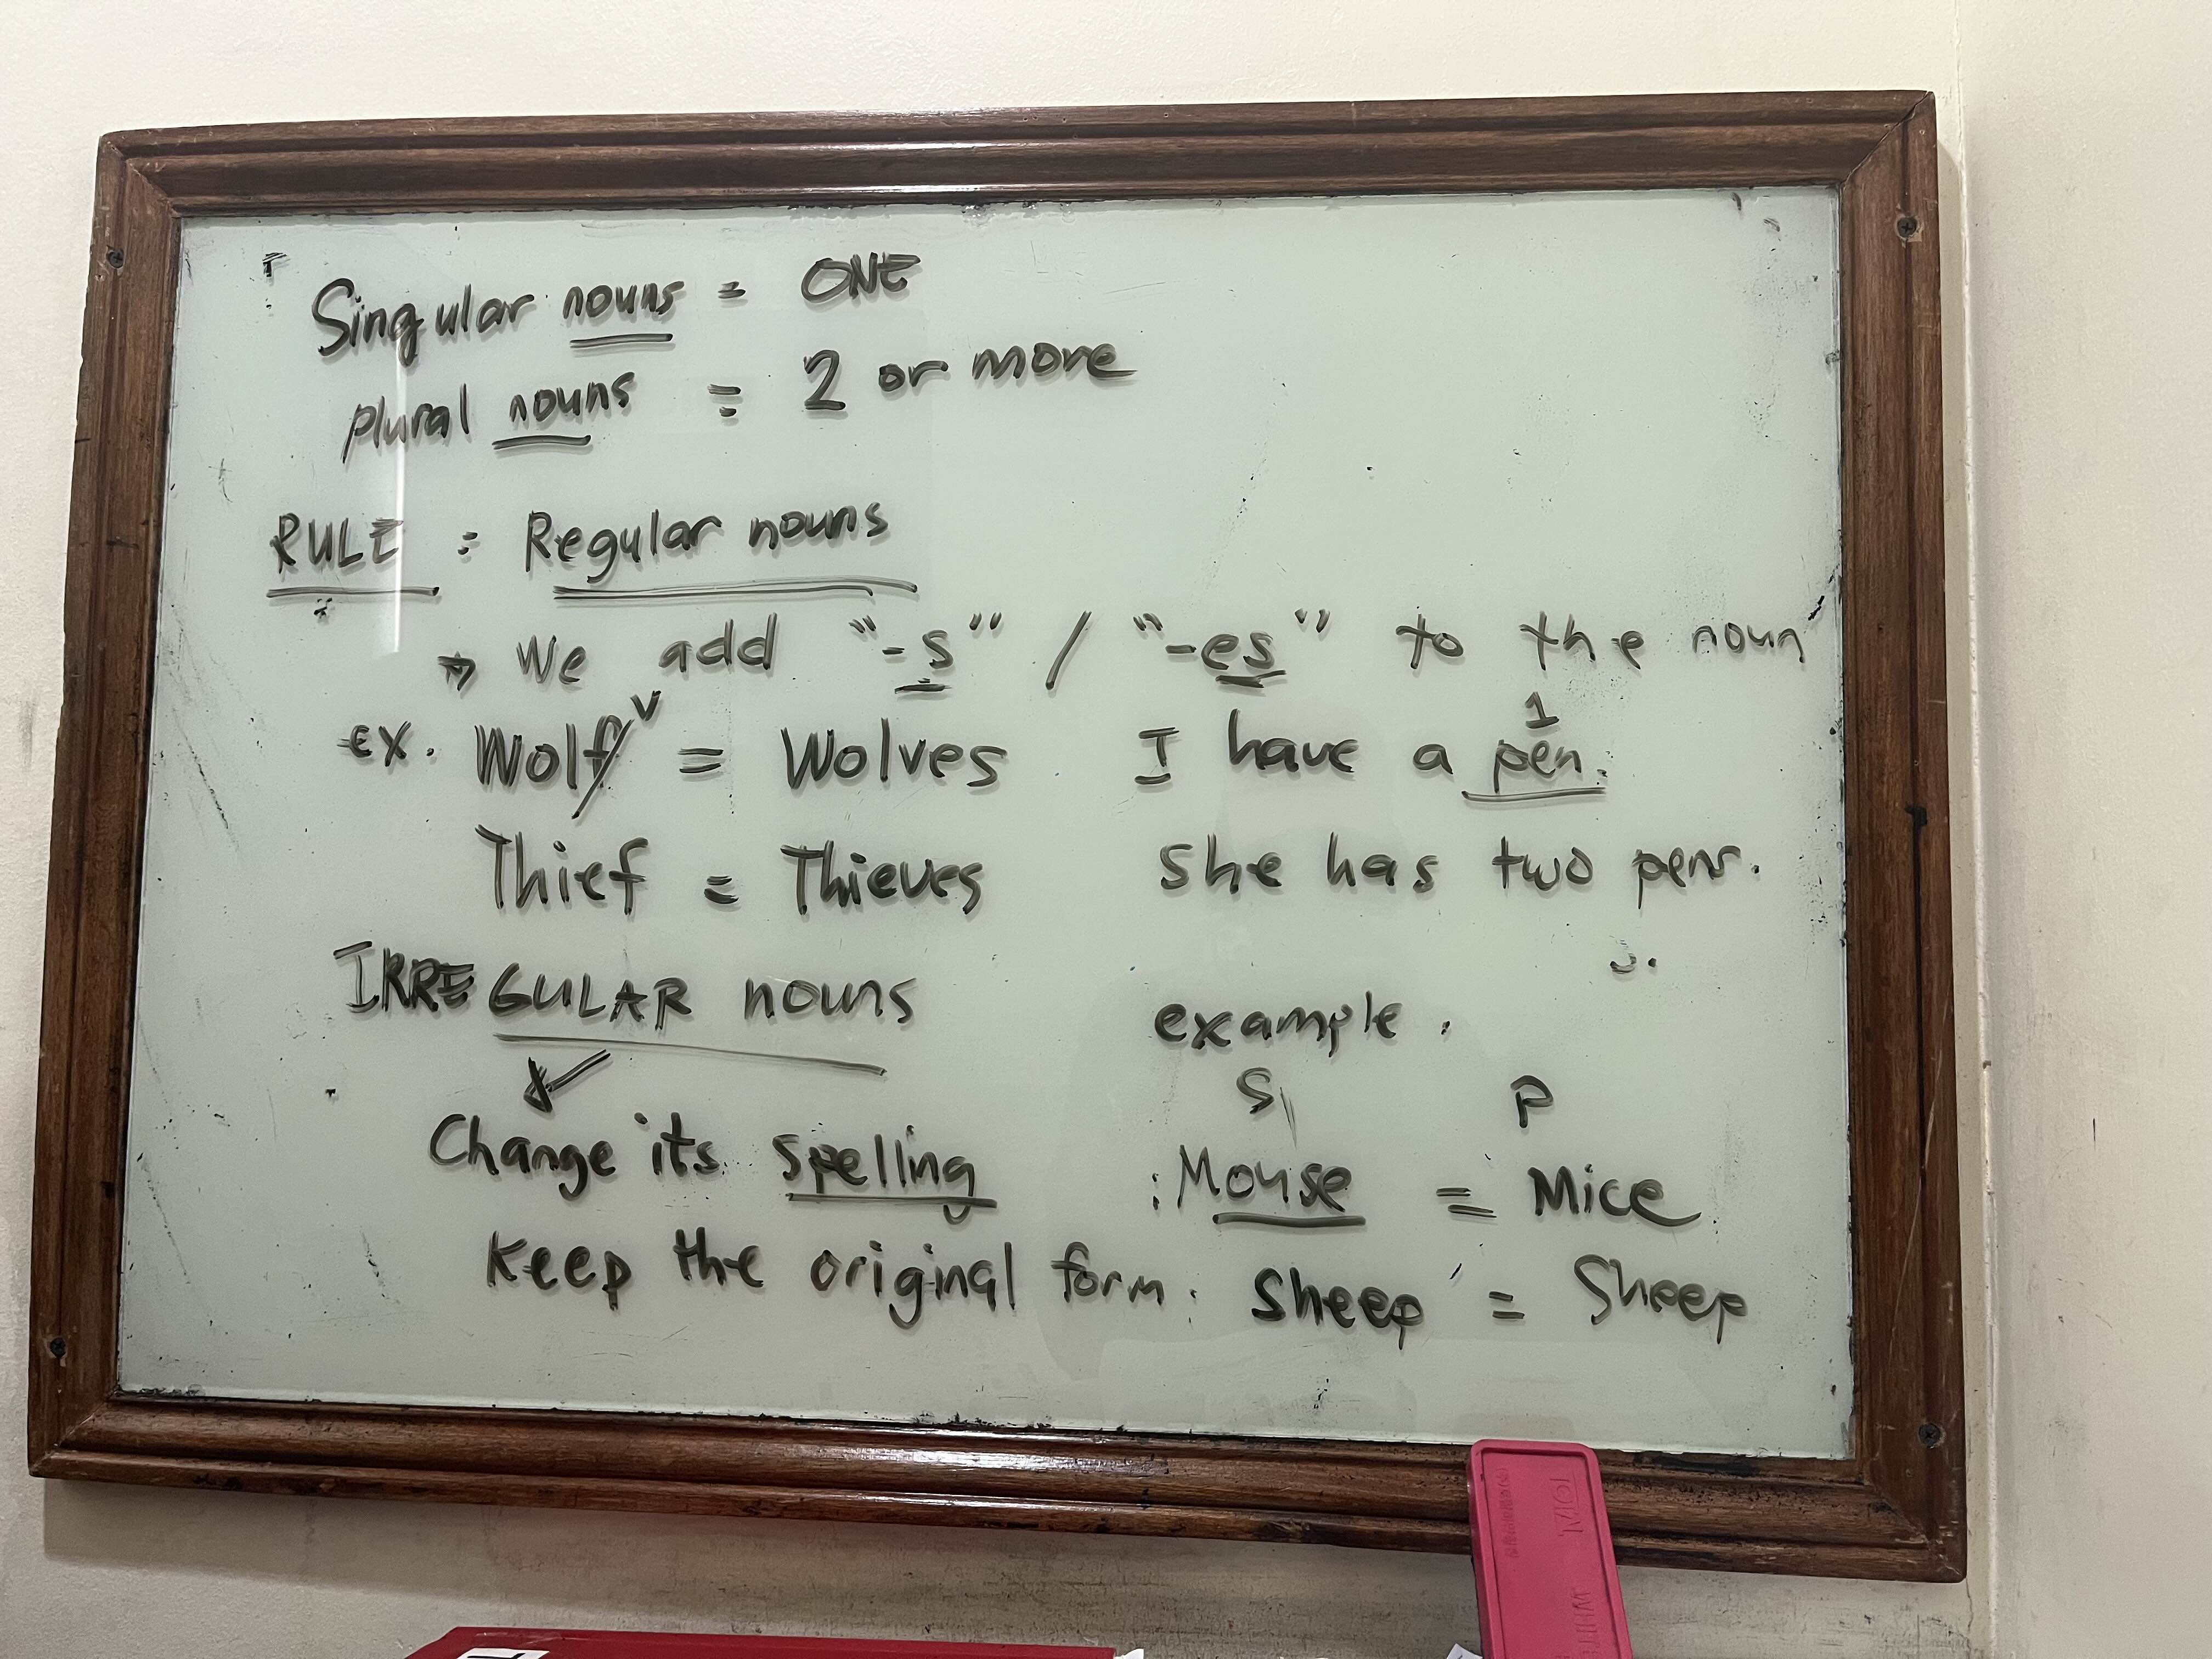 Singular nouns = ONE
plural nouns = 2 or more
RULE : Regular nouns
→ We add "-s" / "-es" to the noun
ex. Wolf v = Wolves I have a pen. 1
Thief = Thieves She has two pens.
IRREGULAR nouns example.
S P
Change its spelling : Mouse = Mice
Keep the original form. Sheep = Sheep
TOTAL
WHITE